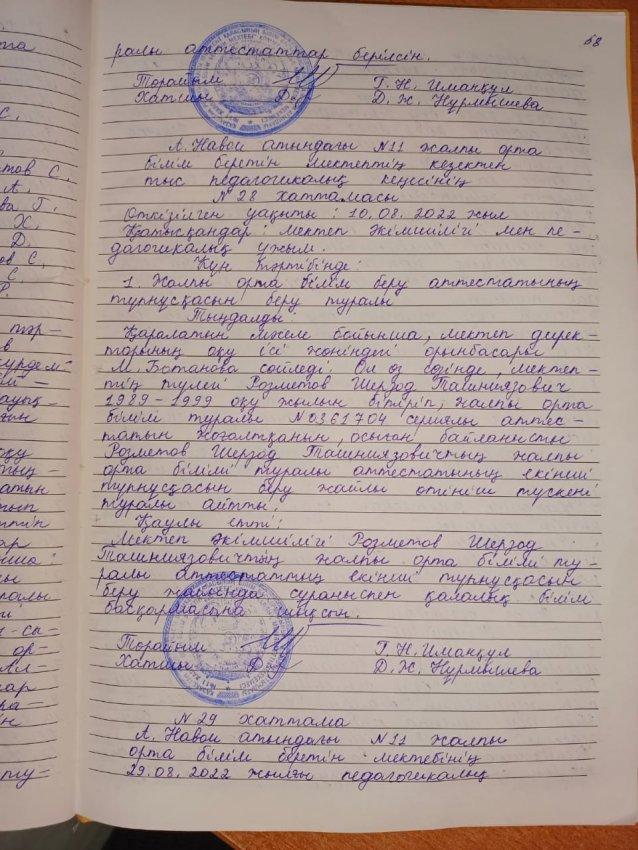 68
ралы аттестаттар берілсін.
Төрайым Г. Н. Иманқұл
Хатшы Д. Ж. Нурмышева
А. Навои атындағы №11 жалпы орта
білім беретін мектептің кезектен
тыс педагогикалық кеңесінің
№ 28 хаттамасы
Өткізілген уақыты: 10.08.2022 жыл
Қатысқандар: Мектеп әкімшілігі мен пе-
дагогикалық ұжым.
Күн тәртібінде:
1. Жалпы орта білім беру аттестатының
түпнұсқасын беру туралы
Тыңдалды:
Қаралатын мәселе бойынша, мектеп дирек-
торының оқу ісі жөніндегі орынбасары
М. Ботанова сөйледі. Ол өз сөзінде, мектеп-
тің түлегі Розметов Шерзод Ташниязович
1989-1999 оқу жылын бітіріп, жалпы орта
білімі туралы №0361704 сериялы аттес-
татын жоғалтқанын, осыған байланысты
Розметов Шерзод Ташниязовичтың жалпы
орта білімі туралы аттестатының екінші
түпнұсқасын беру жайлы өтініш түскені
туралы айтты.
Қаулы етті:
Мектеп әкімшілігі Розметов Шерзод
Ташниязовичтың жалпы орта білімі ту-
ралы аттестаттың екінші түпнұсқасын
беру жайында сұраныспен қалалық білім
басқармасына шықсын.
Төрайым Г. Н. Иманқұл
Хатшы Д. Ж. Нурмышева
№ 29 хаттама
А. Навои атындағы №11 жалпы
орта білім беретін мектебінің
29.08.2022 жылғы педагогикалық